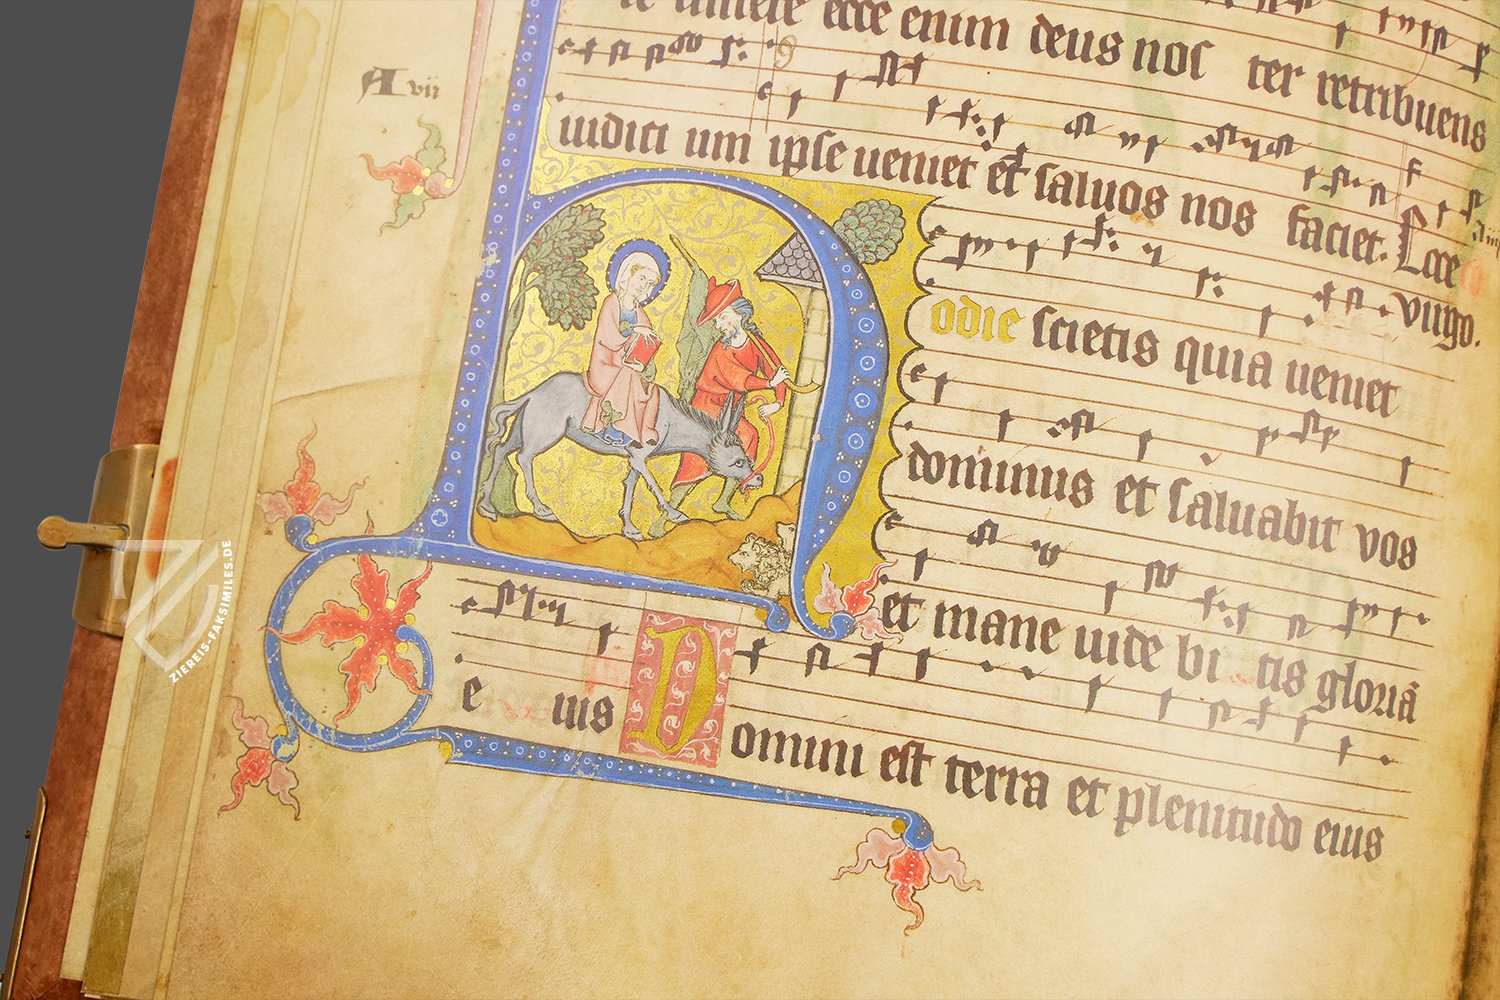 ecce enim deus nos ter retribuens
A vii
iudici um ipse veniet et saluos nos faciet. Ecce
virgo.
odie scietis quia veniet
dominus et saluabit vos
et mane vide bi tis gloriā
e ius Domini est terra et plenitudo eius
ZIEREIS-FAKSIMILES.DE